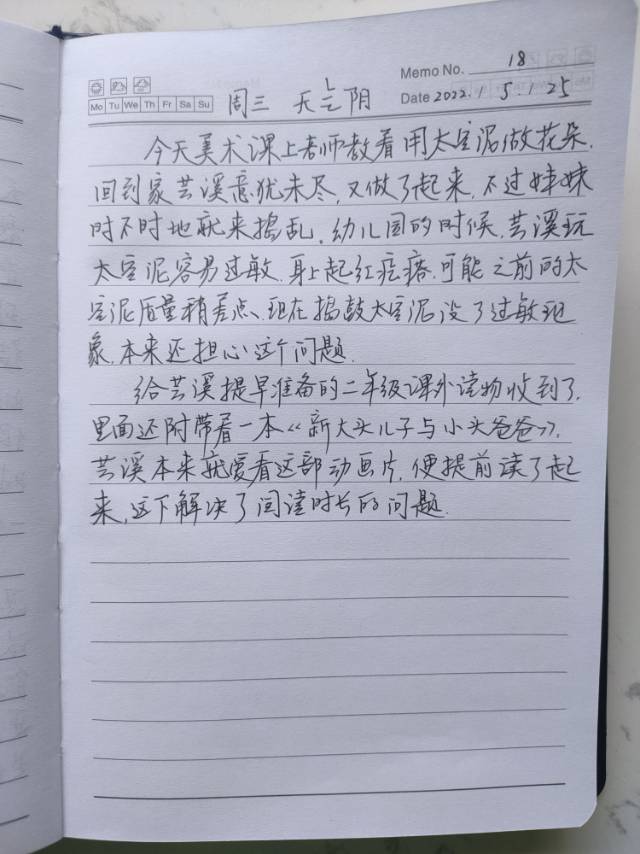 Memo No. 18
Mo Tu We Th Fr Sa Su
Date 2022.1 5.1 25
周三 天气阴
今天美术课上老师教着用太空泥做花朵.
回到家芸溪意犹未尽,又做了起来,不过妹妹
时不时地就来捣乱.幼儿园的时候,芸溪玩
太空泥容易过敏.身上起红疙瘩.可能之前的太
空泥质量稍差点、现在捣鼓太空泥没了过敏现
象.本来还担心这个问题.
给芸溪提早准备的二年级课外读物收到了.
里面还附带着一本《新大头儿子与小头爸爸》.
芸溪本来就爱看这部动画片,便提前读了起
来,这下解决了阅读时长的问题.